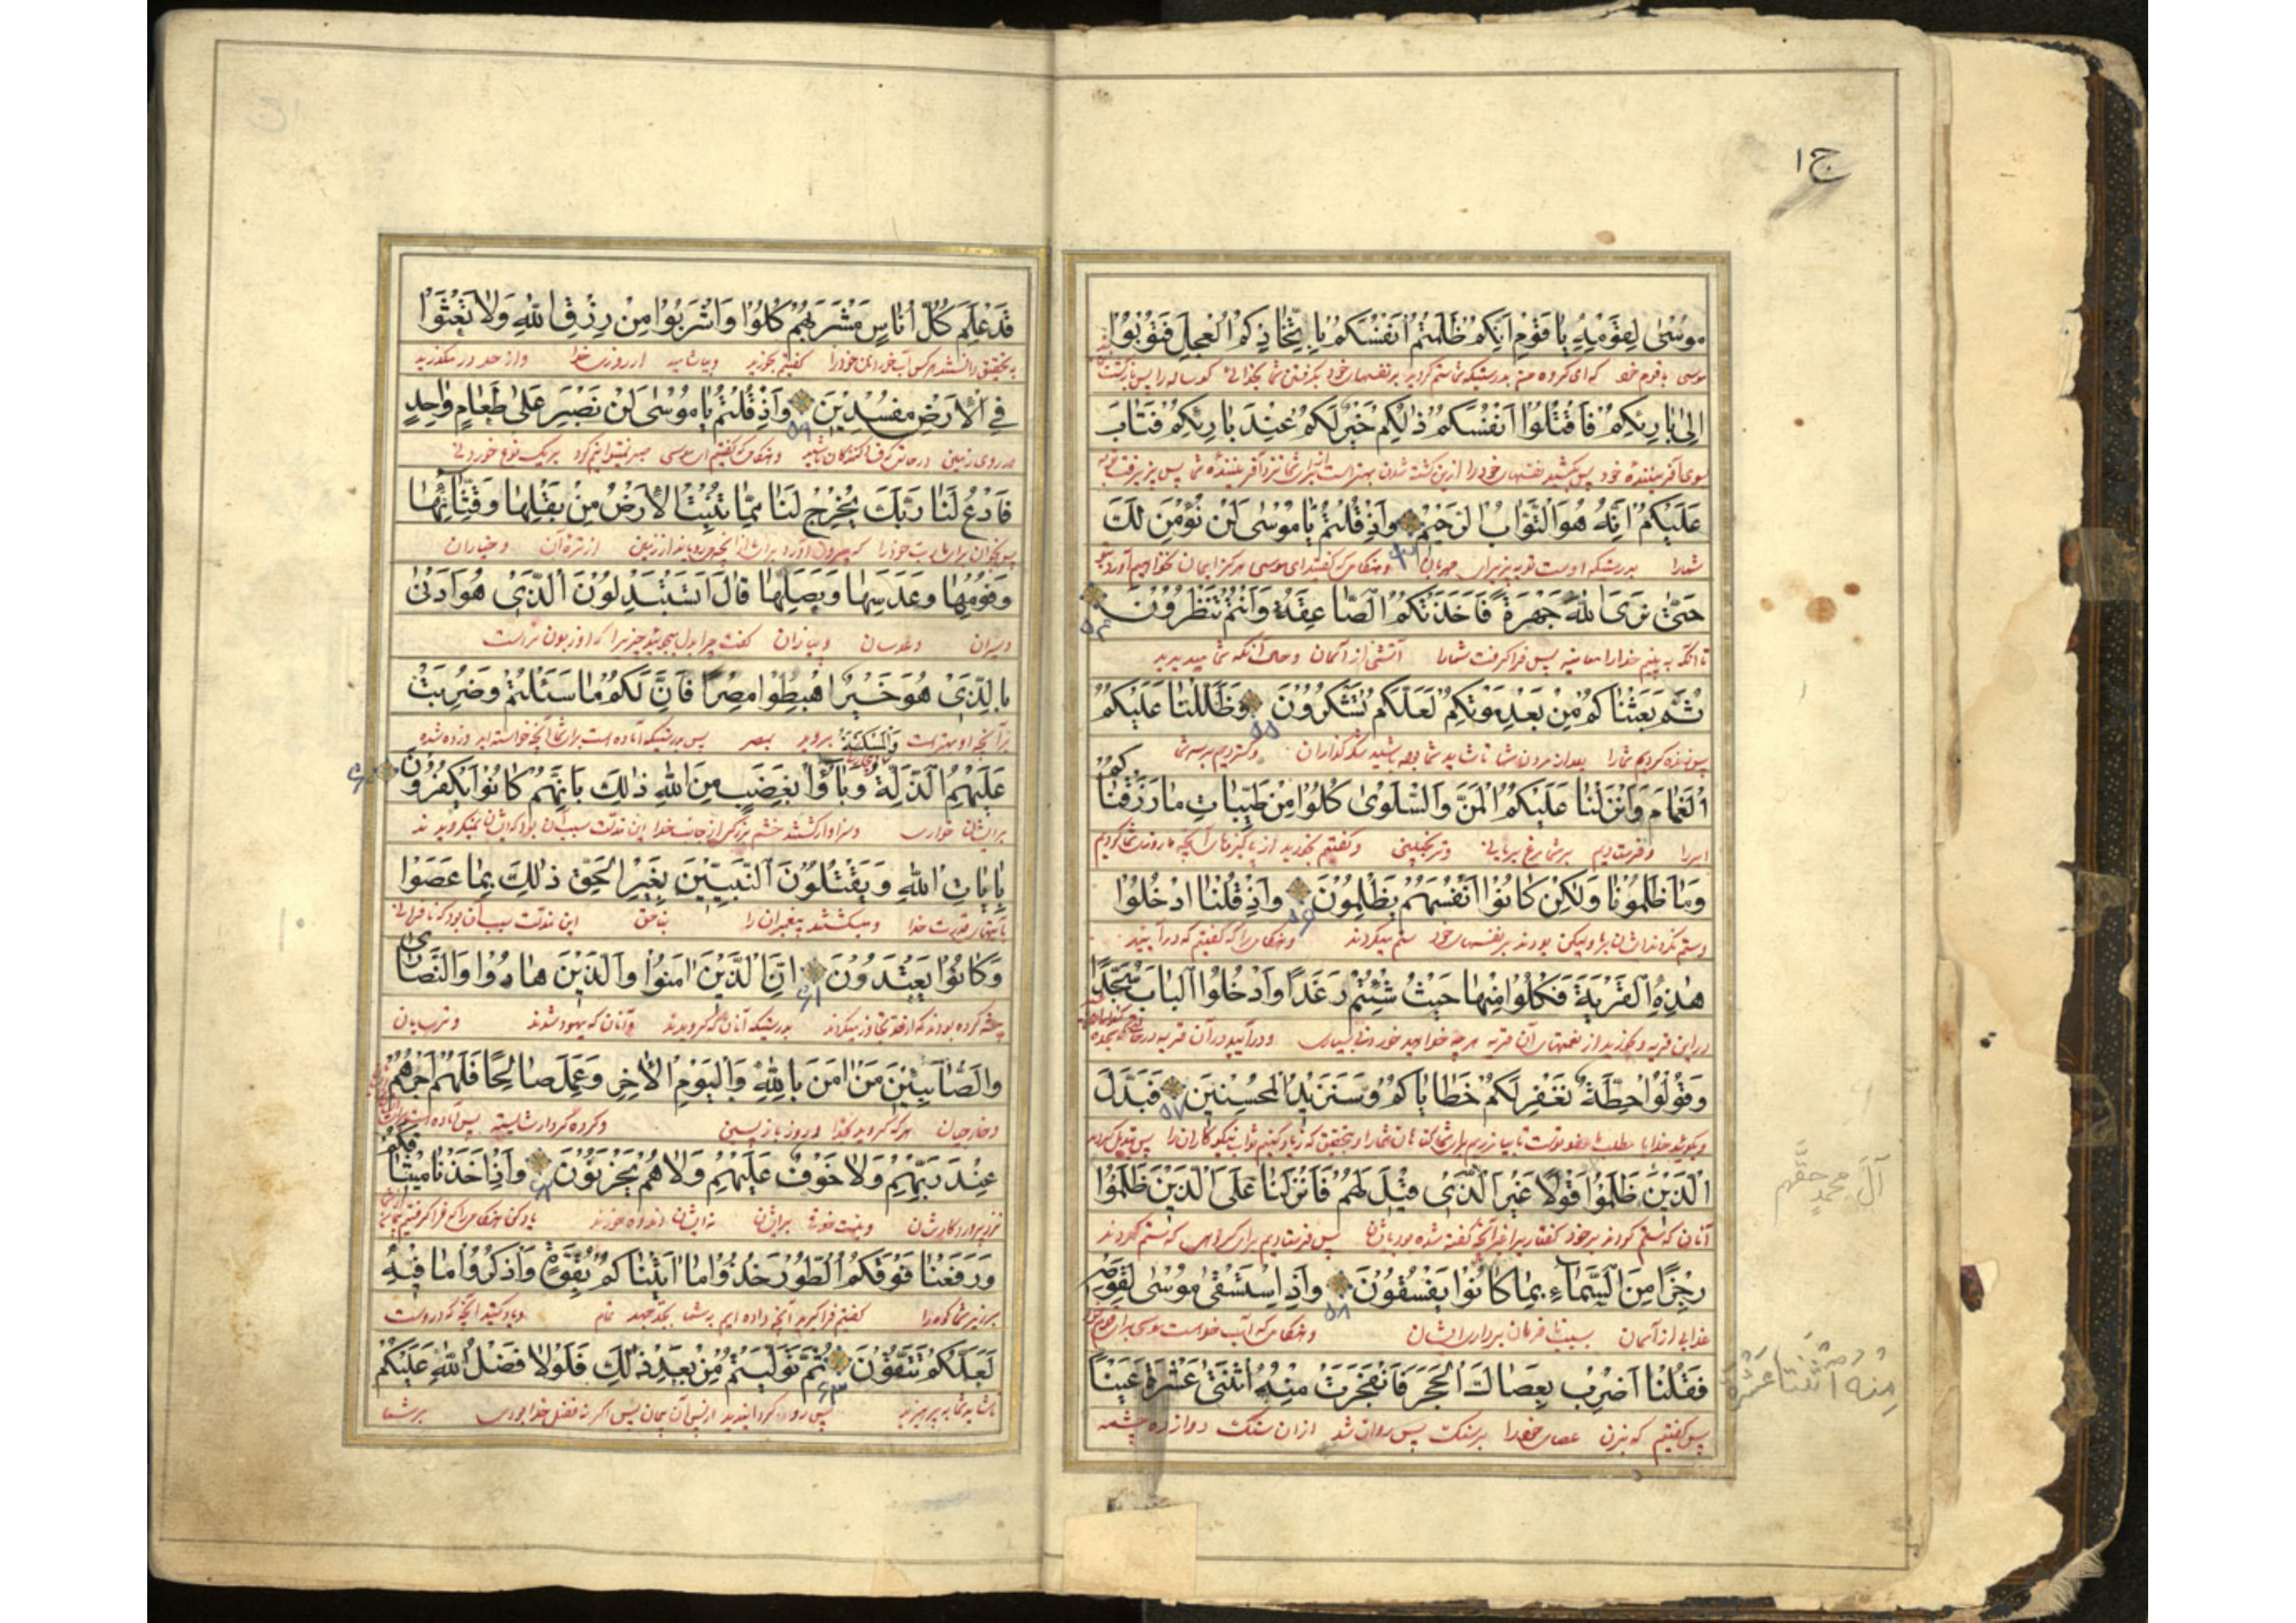 ج ١
موسىٰ لِقَوْمِهِ يا قَوْمِ اِنَّكُمْ ظَلَمْتُمْ اَنْفُسَكُمْ بِاِتِّخاذِكُمُ الْعِجْلَ فَتُوبُوا
موسی با قوم خود که ای گروه من بدرستیکه شما ستم کردید بر نفسهای خود بگرفتن شما بخدائی گوساله را پس بازگشت
اِلىٰ بارِئِكُمْ فَاقْتُلُوا اَنْفُسَكُمْ ذٰلِكُمْ خَيْرٌ لَكُمْ عِنْدَ بارِئِكُمْ فَتابَ
بسوی آفریننده خود پس بکشید نفسهای خود را این کشته شدن بهتر است از برای شما نزد آفریننده شما پس پذیرفت توبه
عَلَيْكُمْ اِنَّهُ هُوَ التَّوّابُ الرَّحيمُ وَاِذْ قُلْتُمْ يا مُوسىٰ لَنْ نُؤْمِنَ لَكَ
شما را بدرستیکه اوست توبه پذیر مهربان و هنگامی که گفتید ای موسی هرگز ایمان نخواهیم آورد بتو
حَتّىٰ نَرَى اللهَ جَهْرَةً فَاَخَذَتْكُمُ الصّاعِقَةُ وَاَنْتُمْ تَنْظُرُونَ
تا آنکه به بینیم خدا را معاینه پس فرا گرفت شما را آتشی از آسمان و حال آنکه شما میدیدید
ثُمَّ بَعَثْناكُمْ مِنْ بَعْدِ مَوْتِكُمْ لَعَلَّكُمْ تَشْكُرُونَ ٥٥ وَظَلَّلْنا عَلَيْكُمُ
پس زنده کردیم شما را بعد از مردن شما تا شاید شما بوده باشید شکر گذاران و گستردیم بر سر شما
الْغَمامَ وَاَنْزَلْنا عَلَيْكُمُ الْمَنَّ وَالسَّلْوىٰ كُلُوا مِنْ طَيِّباتِ ما رَزَقْناكُمْ
ابر را و فرستادیم بر شما مرغ بریانی و ترنجبینی و گفتیم بخورید از پاکیزهای آنچه ما روزی شما کردیم
وَما ظَلَمُونا وَلٰكِنْ كانُوا اَنْفُسَهُمْ يَظْلِمُونَ ٥٦ وَاِذْ قُلْنَا ادْخُلُوا
و ستم نکردند ایشان بر ما ولیکن بودند بر نفسهای خود ستم میکردند و هنگامی را که گفتیم که در آیید
هٰذِهِ الْقَرْيَةَ فَكُلُوا مِنْها حَيْثُ شِئْتُمْ رَغَدًا وَادْخُلُوا الْبابَ سُجَّدًا
در این قریه و بخورید از نعمتهای آن قریه هر چه خواهید خوردنی بسیاری و در آیید در آن قریه
وَقُولُوا حِطَّةٌ نَغْفِرْ لَكُمْ خَطاياكُمْ وَسَنَزيدُ الْمُحْسِنينَ ٥٧ فَبَدَّلَ
و بگویید خدایا مطلب ما عفو تست تا بیامرزیم برای شما گناهان شما را و بتحقیق که زیاد کنیم ثواب نیکوکاران را پس تبدیل کردند
الَّذينَ ظَلَمُوا قَوْلًا غَيْرَ الَّذى قيلَ لَهُمْ فَاَنْزَلْنا عَلَى الَّذينَ ظَلَمُوا
آل محمد حقهم
آنان که ستم کردند بر خود گفتار را غیر آنچه گفته شده بود بایشان پس فرستادیم برای گروهی که ستم کردند
رِجْزًا مِنَ السَّماءِ بِما كانُوا يَفْسُقُونَ ٥٨ وَاِذِ اسْتَسْقىٰ مُوسىٰ لِقَوْمِهِ
عذابی از آسمان بسبب نافرمان برداری ایشان و هنگامی که آب خواست موسی برای قوم خود
فَقُلْنَا اضْرِبْ بِعَصاكَ الْحَجَرَ فَانْفَجَرَتْ مِنْهُ اثْنَتىٰ عَشْرَةَ عَيْنًا
مِنه اثنتا عشرة
پس گفتیم که بزن عصای خود را بر سنگ پس روان شد از آن سنگ دوازده چشمه
قَدْ عَلِمَ كُلُّ اُناسٍ مَشْرَبَهُمْ كُلُوا وَاشْرَبُوا مِنْ رِزْقِ اللهِ وَلا تَعْثَوْا
بتحقیق دانستند هر کس آب خورهای خود را گفتیم بخورید و بیاشامید از روزی خدا و از حد در مگذرید
فِى الْاَرْضِ مُفْسِدينَ ٥٩ وَاِذْ قُلْتُمْ يا مُوسىٰ لَنْ نَصْبِرَ عَلىٰ طَعامٍ واحِدٍ
در روی زمین در حالتی که فساد کنندگان باشید و هنگامی که گفتیم ای موسی صبر نمیتوانیم کرد بر یک نوع خوردنی
فَادْعُ لَنا رَبَّكَ يُخْرِجْ لَنا مِمّا تُنْبِتُ الْاَرْضُ مِنْ بَقْلِها وَقِثّائِها
پس بخوان برای ما رب خود را که بیرون آورد برای ما از آنچه میرویاند از زمین از تره آن و خیاران
وَفُومِها وَعَدَسِها وَبَصَلِها قالَ اَتَسْتَبْدِلُونَ الَّذى هُوَ اَدْنىٰ
و سیران و عدسان و پیازان گفت چرا بدل میجویید چیزیرا که او زبون تر است
بِالَّذى هُوَ خَيْرٌ اِهْبِطُوا مِصْرًا فَاِنَّ لَكُمْ ما سَئَلْتُمْ وَضُرِبَتْ
بر آنچه او بهتر است بروید بمصر پس بدرستیکه آماده است برای شما آنچه خواسته اید و زده شده
وَالْمَسْكَنَةُ
عَلَيْهِمُ الذِّلَّةُ وَباؤُا بِغَضَبٍ مِنَ اللهِ ذٰلِكَ بِاَنَّهُمْ كانُوا يَكْفُرُونَ
بر ایشان خواری و سزاوار گشتند خشم بزرگی از جانب خدا این مذلت بسبب آن بود که ایشان نمیگرویدند
بِاٰياتِ اللهِ وَيَقْتُلُونَ النَّبِيّينَ بِغَيْرِ الْحَقِّ ذٰلِكَ بِما عَصَوْا
بآیتهای قدرت خدا و میکشتند پیغمبران را بناحق این مذلت بسبب آن بود که نافرمانی
وَكانُوا يَعْتَدُونَ ٦١ اِنَّ الَّذينَ اٰمَنُوا وَالَّذينَ هادُوا وَالنَّصارىٰ
پیشه کرده بودند که از حد تجاوز میکردند بدرستیکه آنان که گرویدند و آنان که یهود شدند و ترسایان
وَالصّابِئينَ مَنْ اٰمَنَ بِاللهِ وَالْيَوْمِ الْاٰخِرِ وَعَمِلَ صالِحًا فَلَهُمْ اَجْرُهُمْ
و خارجیان هر که گروید بخدا و روز باز پسین و کرده کردار شایسته پس آماده است
عِنْدَ رَبِّهِمْ وَلا خَوْفٌ عَلَيْهِمْ وَلا هُمْ يَحْزَنُونَ ٦٢ وَاِذْ اَخَذْنا ميثاقَكُمْ
نزد پروردگارشان و نیست خوفی بر ایشان نه ایشان اندوه خورند یاد کن هنگامی را که فرا گرفتیم
وَرَفَعْنا فَوْقَكُمُ الطُّورَ خُذُوا ما اٰتَيْناكُمْ بِقُوَّةٍ وَاذْكُرُوا ما فيهِ
بر زبر شما کوه را گفتیم فرا گیرید آنچه داده ایم به شما بجد و جهد تمام و یاد کنید آنچه که دروست
لَعَلَّكُمْ تَتَّقُونَ ٦٣ ثُمَّ تَوَلَّيْتُمْ مِنْ بَعْدِ ذٰلِكَ فَلَوْلا فَضْلُ اللهِ عَلَيْكُمْ
تا شاید شما بپرهیزید پس رو گردانیدید از پس آن پیمان پس اگر نه فضل خدا بودی بر شما